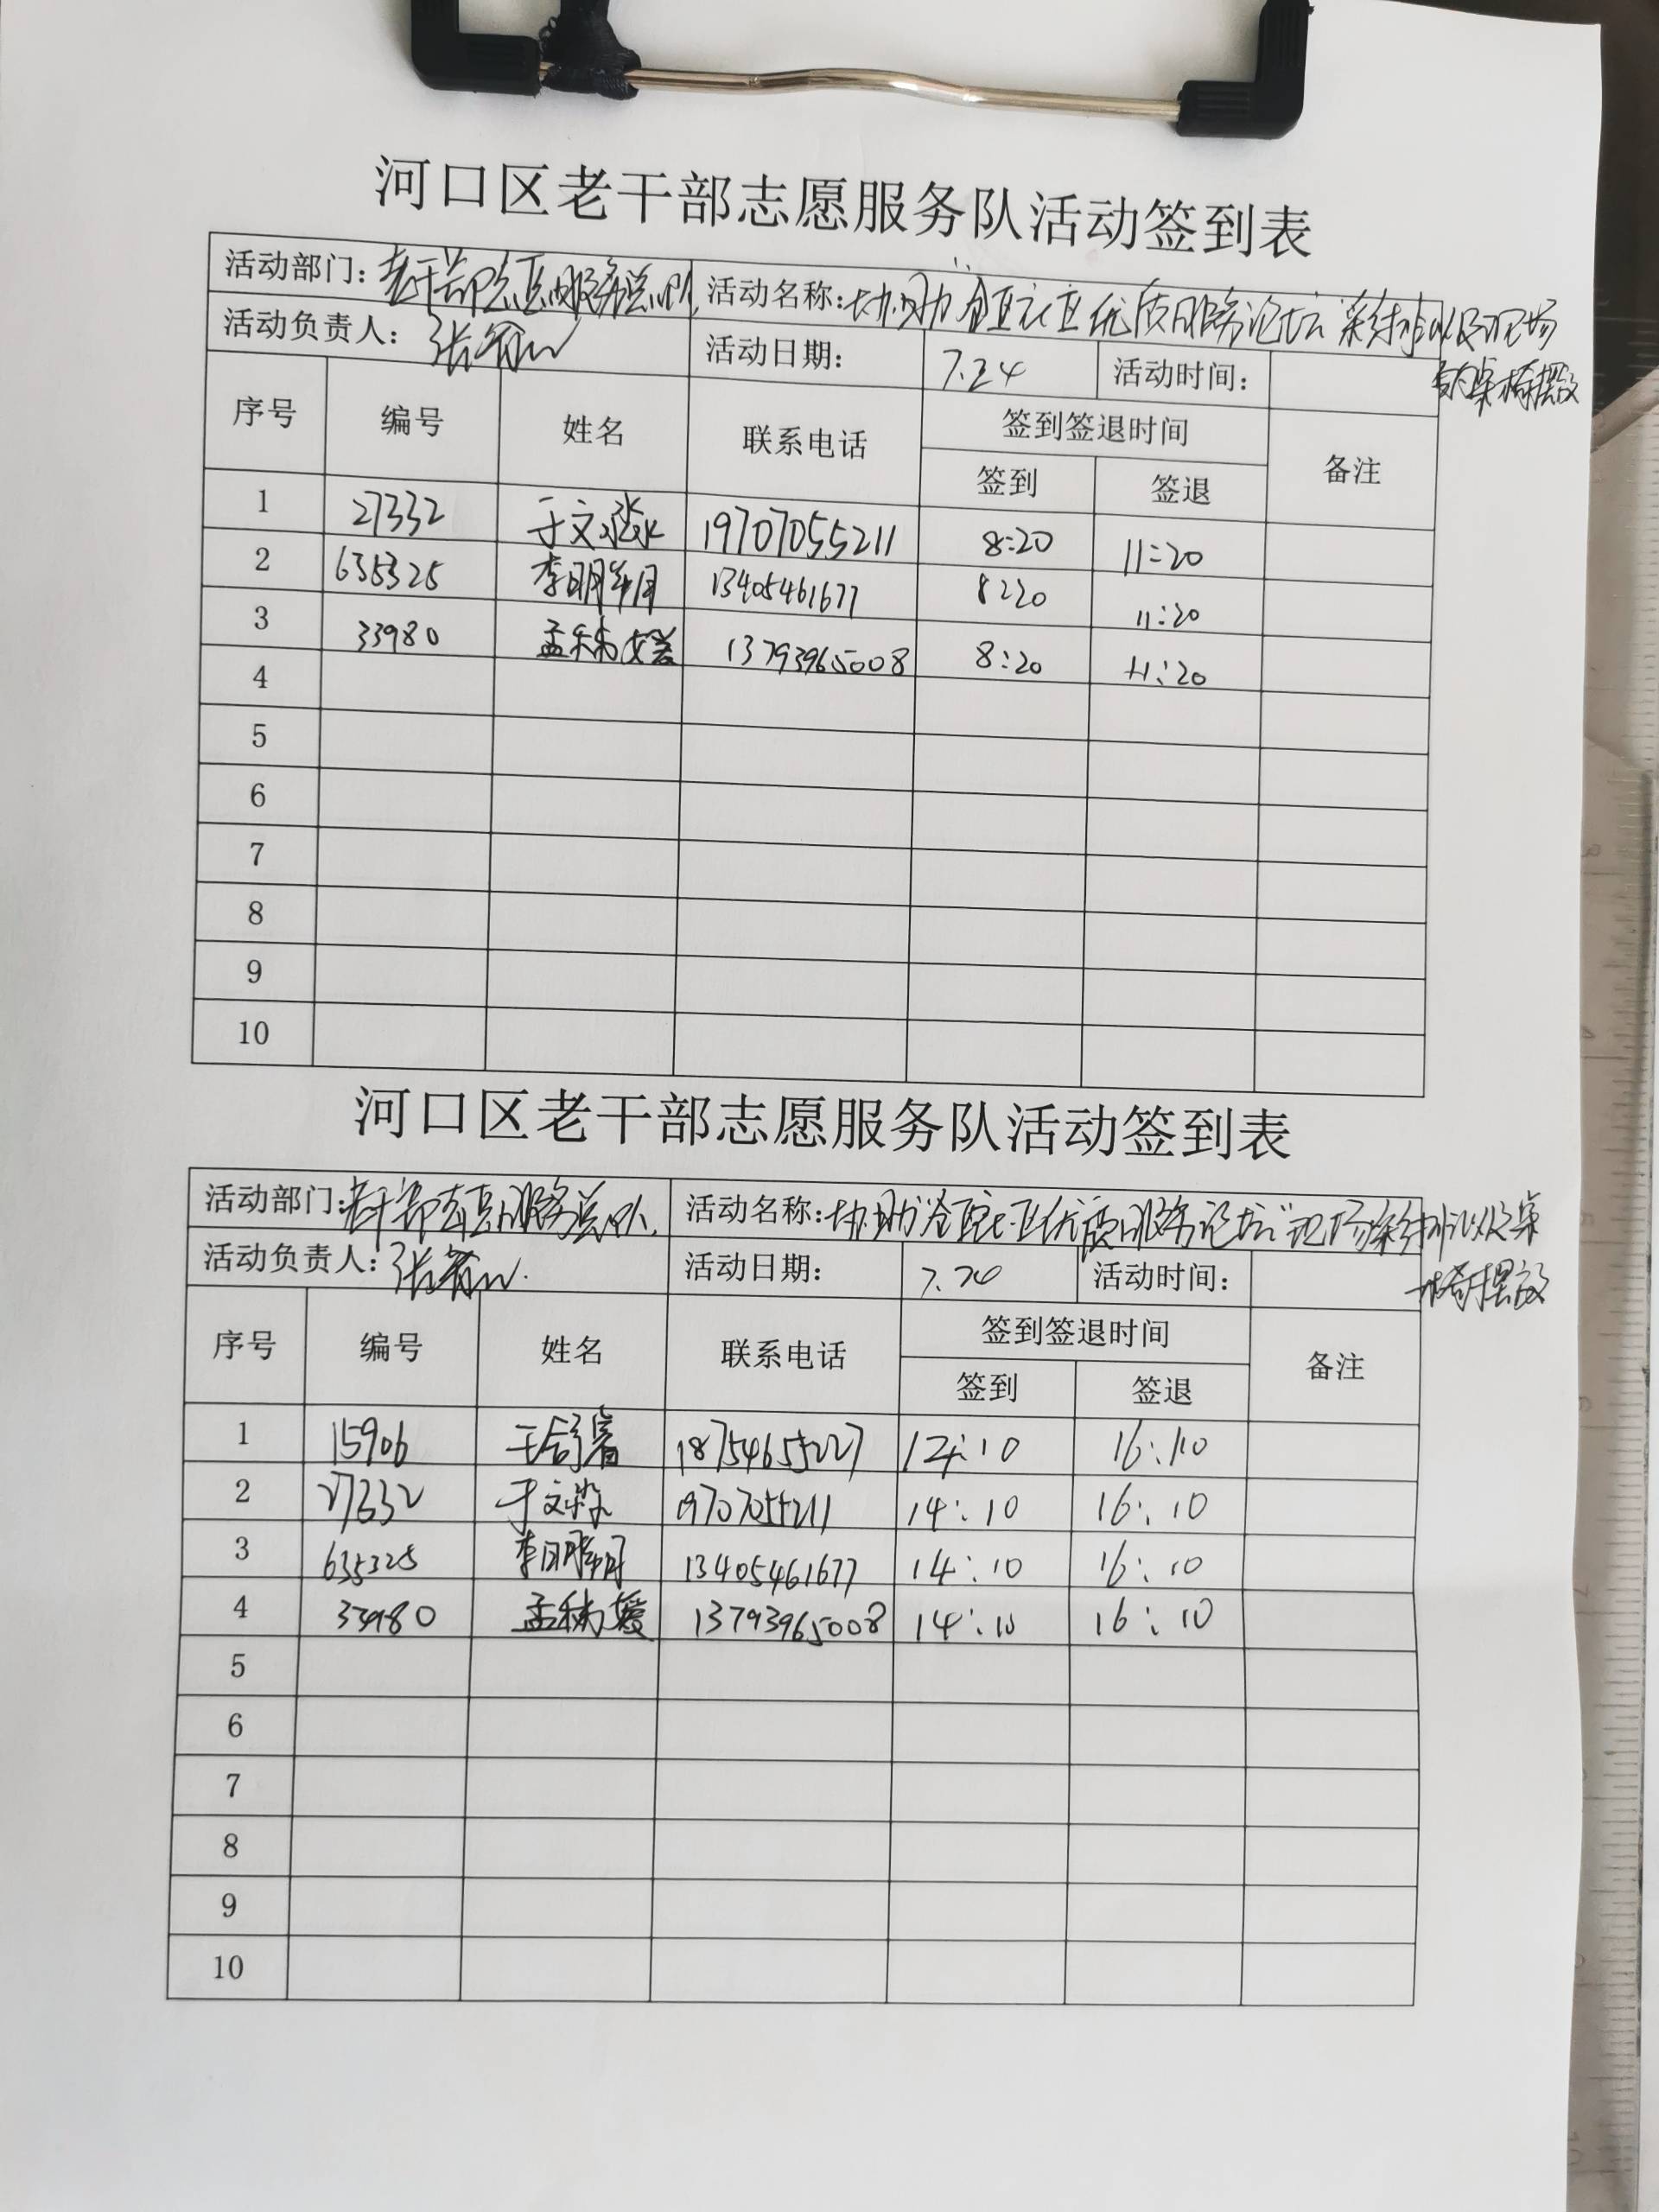 河口区老干部志愿服务队活动签到表
活动部门：老干部志愿服务总队 活动名称：协助"全区社区优质服务论坛"彩排以及现场
桌椅摆放
活动负责人： 活动日期： 7.24 活动时间：
序号 编号 姓名 联系电话 签到签退时间 备注
签到 签退
1 27332 于文淼 19707055211 8:20 11:20
2 635325 李明 13405461677 8:20 11:20
3 33980 孟秋媛 13793965008 8:20 11:20
4
5
6
7
8
9
10
河口区老干部志愿服务队活动签到表
活动部门：老干部志愿服务总队 活动名称：协助"全区社区优质服务论坛"现场彩排以及桌
椅摆放
活动负责人： 活动日期： 7.24 活动时间：
序号 编号 姓名 联系电话 签到签退时间 备注
签到 签退
1 15906 18754655227 14:10 16:10
2 27332 于文淼 19707055211 14:10 16:10
3 635325 李明 13405461677 14:10 16:10
4 33980 孟秋媛 13793965008 14:10 16:10
5
6
7
8
9
10